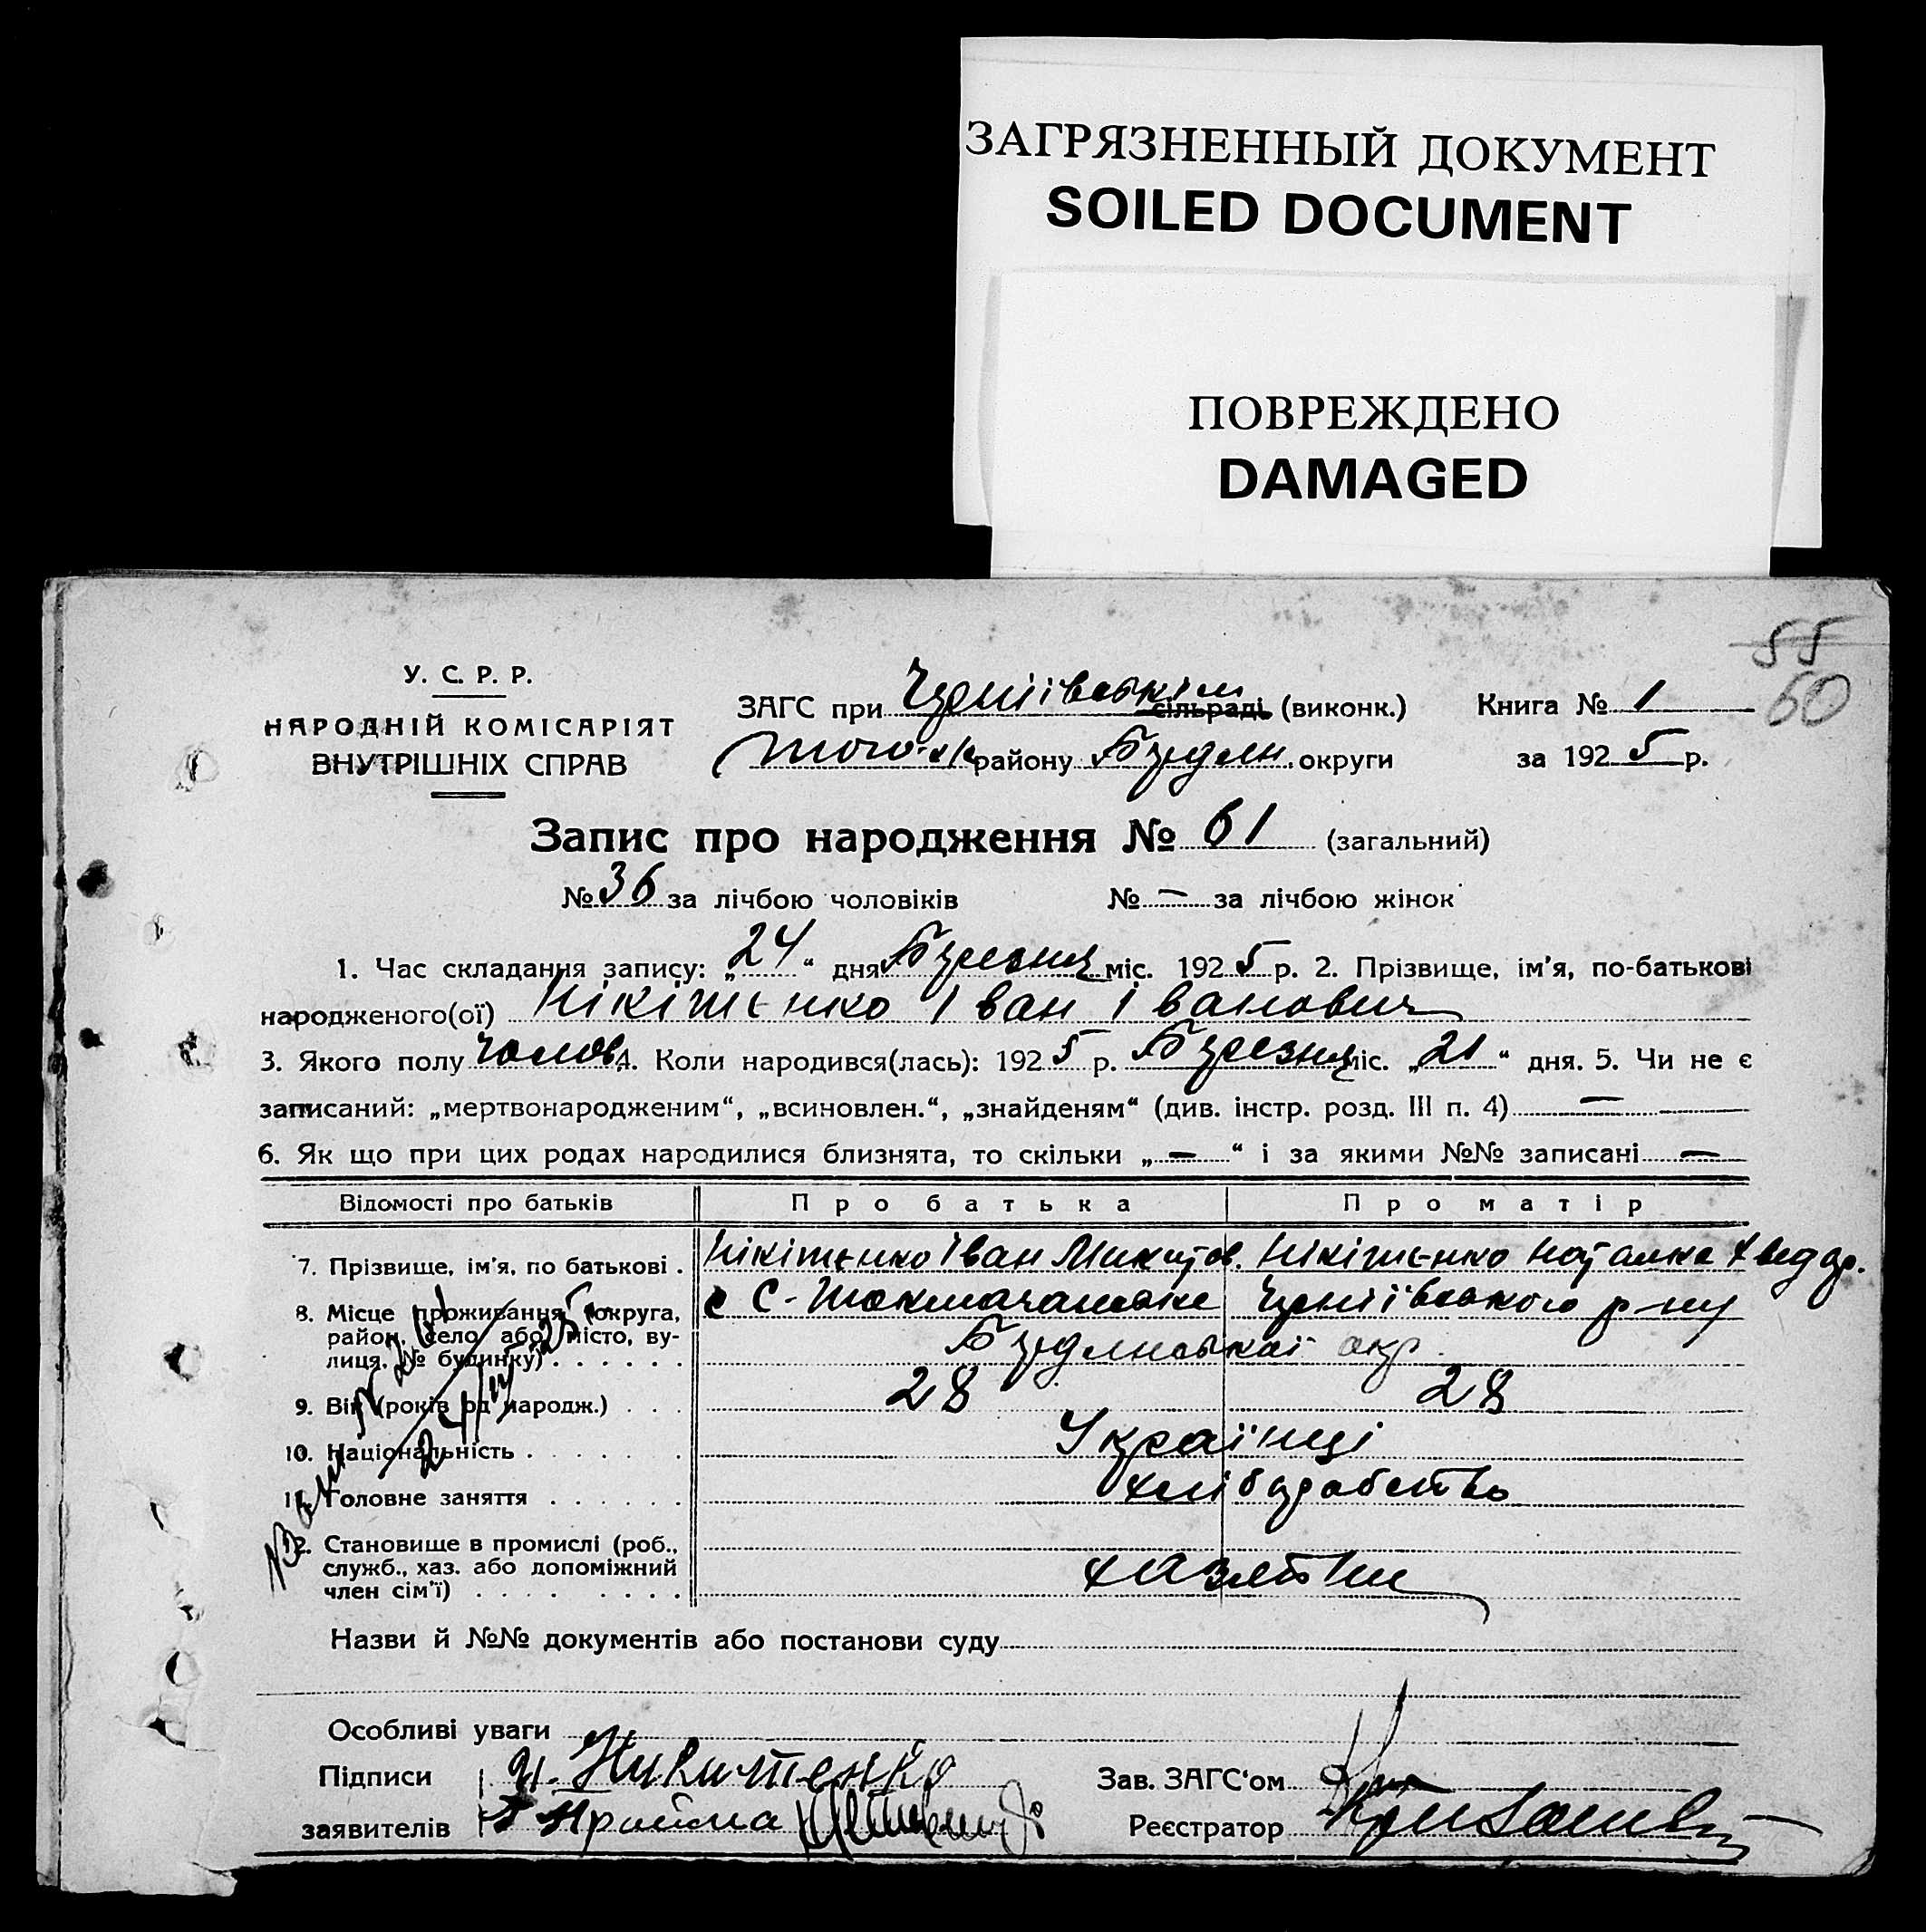 ЗАГРЯЗНЕННЫЙ ДОКУМЕНТ
SOILED DOCUMENT
ПОВРЕЖДЕНО
DAMAGED
55
60
У. С. Р. Р.
НАРОДНІЙ КОМІСАРІЯТ
ВНУТРІШНІХ СПРАВ
ЗАГС при сільраді (виконк.)
району округи
Книга № 1
за 1925 р.
Запис про народження № 61 (загальний)
№ 36 за лічбою чоловіків № — за лічбою жінок
1. Час складання запису: „24“ дня Березня міс. 1925 р. 2. Прізвище, ім'я, по-батькові
народженого(ої) Нікітенко Іван Іванович
3. Якого полу чолов. 4. Коли народився(лась): 1925 р. Березня міс. „21“ дня. 5. Чи не є
записаний: „мертвонародженим“, „всиновлен.“, „знайденям“ (див. інстр. розд. III п. 4) —
6. Як що при цих родах народилися близнята, то скільки „—“ і за якими №№ записані —
Відомості про батьків Про батька Про матір
7. Прізвище, ім'я, по батькові . Нікітенко Іван Микитов. Нікітенко Наталка
8. Місце проживання (округа, район, село або місто, вулиця, № будинку) . . . . . .
р-ну
окр.
9. Вік (років од народж.) . . . 28 28
10. Національність . . . . . . Українці
11. Головне заняття . . . . . . хліборобство
12. Становище в промислі (роб., служб., хаз. або допоміжний член сім'ї) . . . . . . .
Назви й №№ документів або постанови суду
Особливі уваги
Підписи Никитенко
заявителів
Зав. ЗАГС'ом
Реєстратор